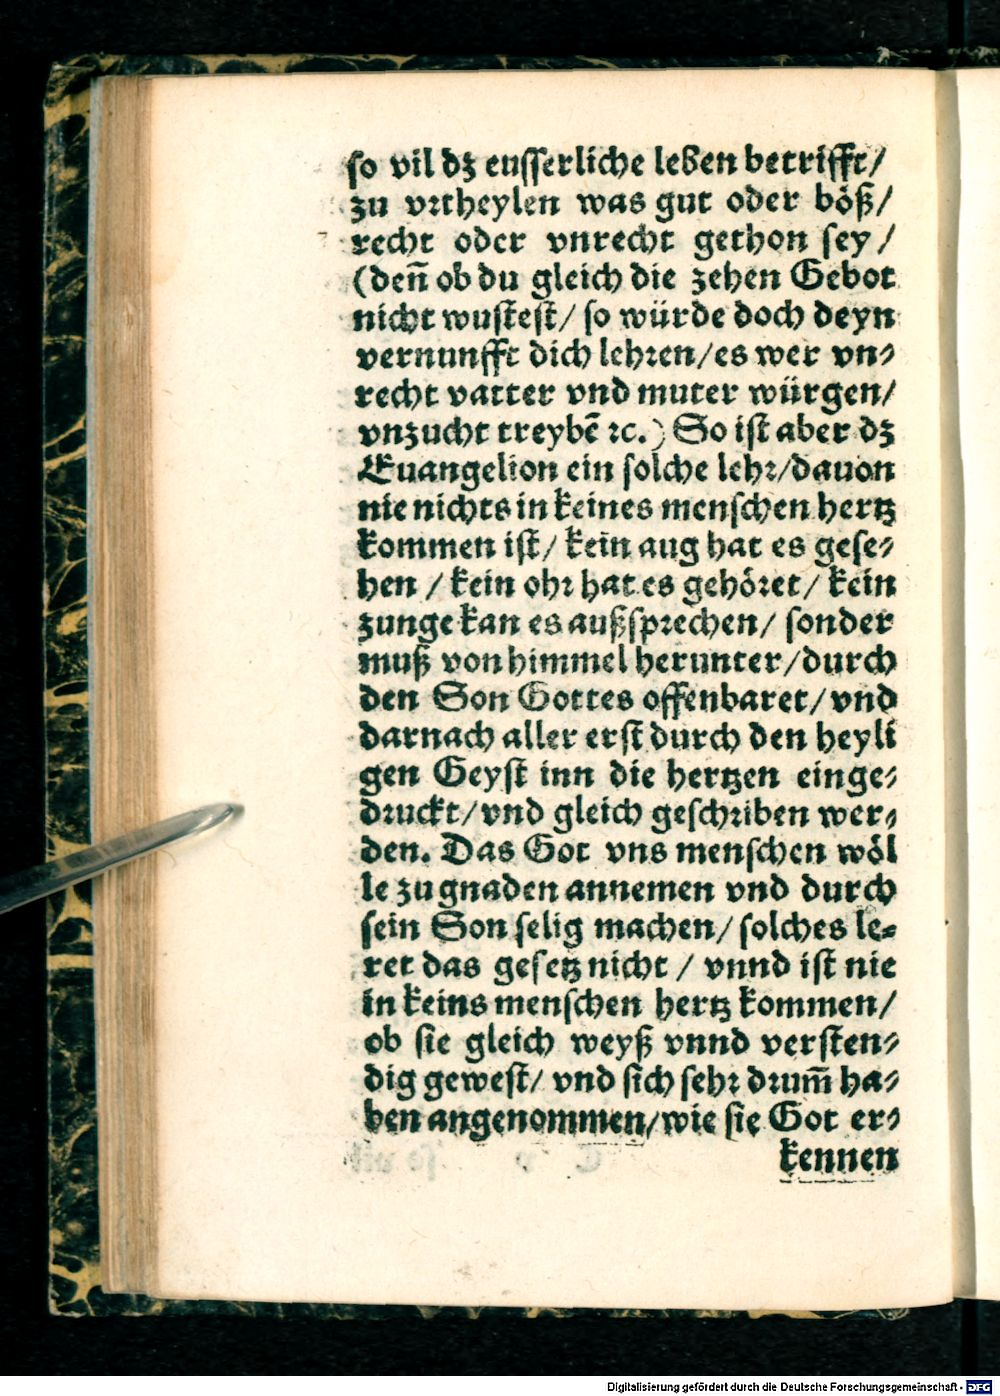 so vil dz eusserliche leben betrifft/
zu vrtheylen was gut oder böß/
recht oder vnrecht gethon sey/
(deñ ob du gleich die zehen Gebot
nicht wustest/ so würde doch deyn
vernunfft dich lehren/es wer vn⸗
recht vatter vnd muter würgen/
vnzucht treybē ꝛc.) So ist aber dz
Euangelion ein solche lehr/dauon
nie nichts in keines menschen hertz
kommen ist/ kein aug hat es gese⸗
hen / kein ohr hat es gehöret/ kein
zunge kan es außsprechen/ sonder
muß von himmel herunter/durch
den Son Gottes offenbaret/vnd
darnach aller erst durch den heyli
gen Geyst inn die hertzen einge⸗
druckt/vnd gleich geschriben wer⸗
den. Das Got vns menschen wöl
le zu gnaden annemen vnd durch
sein Son selig machen/ solches le⸗
ret das gesetz nicht / vnnd ist nie
in keins menschen hertz kommen/
ob sie gleich weyß vnnd versten⸗
dig gewest/ vnd sich sehr drum̃ ha⸗
ben angenommen/wie sie Got er⸗
kennen
Digitalisierung gefördert durch die Deutsche Forschungsgemeinschaft - DFG